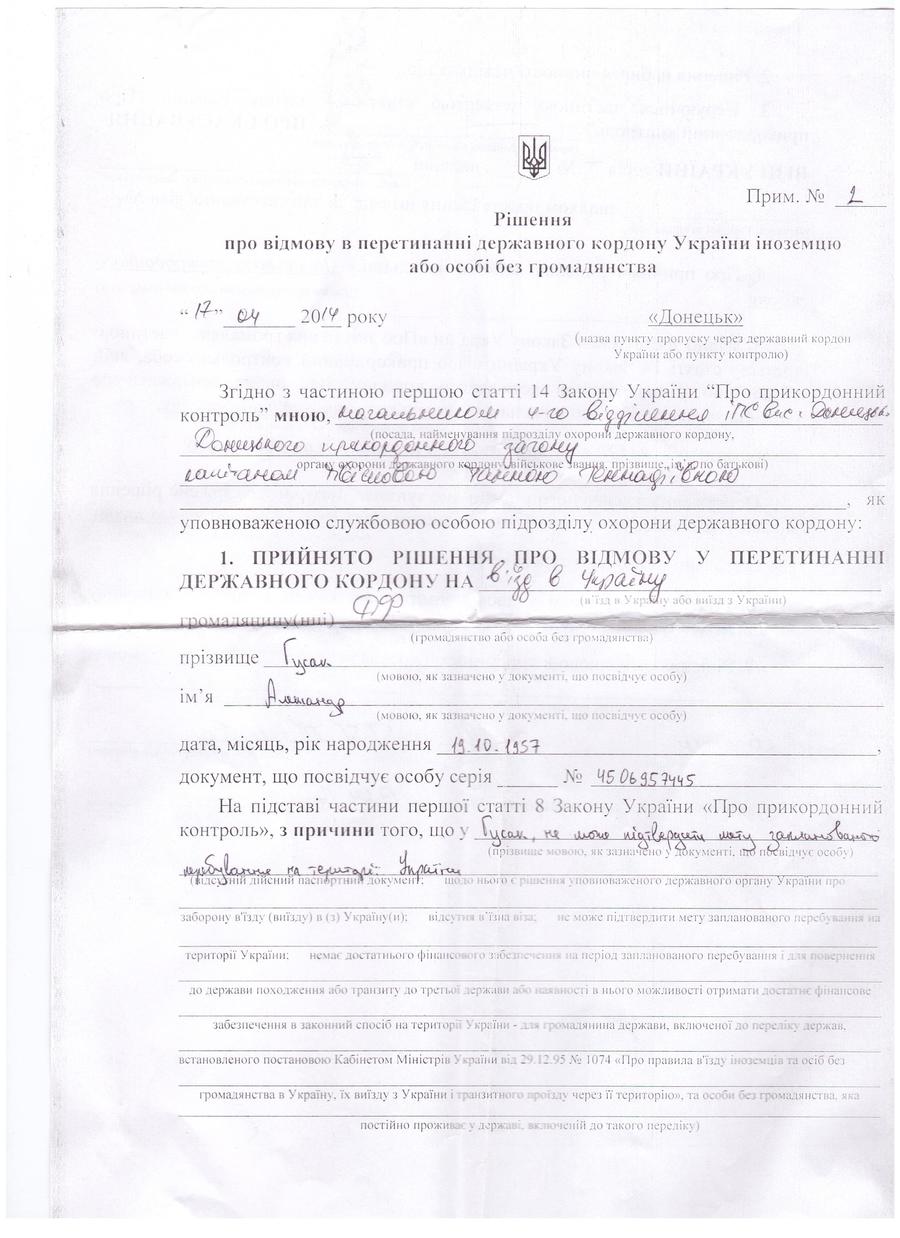 Прим. № 2
Рішення
про відмову в перетинанні державного кордону України іноземцю
або особі без громадянства
“ 17 ” 04 2014 року «Донецьк»
(назва пункту пропуску через державний кордон
України або пункту контролю)
Згідно з частиною першою статті 14 Закону України “Про прикордонний
контроль” мною, начальником 4-го відділення іПС
(посада, найменування підрозділу охорони державного кордону,
Донецького прикордонного загону
органу охорони державного кордону, військове звання, прізвище, ім’я, по батькові)
капітаном Геннадіївною
, як
уповноваженою службовою особою підрозділу охорони державного кордону:
1. ПРИЙНЯТО РІШЕННЯ ПРО ВІДМОВУ У ПЕРЕТИНАННІ
ДЕРЖАВНОГО КОРДОНУ НА в'їзд в Україну
(в’їзд в Україну або виїзд з України)
громадянину(нці) РФ
(громадянство або особа без громадянства)
прізвище Гусак
(мовою, як зазначено у документі, що посвідчує особу)
ім’я Александр
(мовою, як зазначено у документі, що посвідчує особу)
дата, місяць, рік народження 19.10.1957,
документ, що посвідчує особу серія № 4506957445
На підставі частини першої статті 8 Закону України «Про прикордонний
контроль», з причини того, що у Гусак, не може підтвердити мету запланованого
(прізвище мовою, як зазначено у документі, що посвідчує особу)
перебування на території України
(відсутній дійсний паспортний документ; щодо нього є рішення уповноваженого державного органу України про
заборону в'їзду (виїзду) в (з) Україну(и); відсутня в’їзна віза; не може підтвердити мету запланованого перебування на
території України; немає достатнього фінансового забезпечення на період запланованого перебування і для повернення
до держави походження або транзиту до третьої держави або наявності в нього можливості отримати достатнє фінансове
забезпечення в законний спосіб на території України - для громадянина держави, включеної до переліку держав,
встановленого постановою Кабінетом Міністрів України від 29.12.95 № 1074 «Про правила в'їзду іноземців та осіб без
громадянства в Україну, їх виїзду з України і транзитного проїзду через її територію», та особи без громадянства, яка
постійно проживає у державі, включеній до такого переліку)